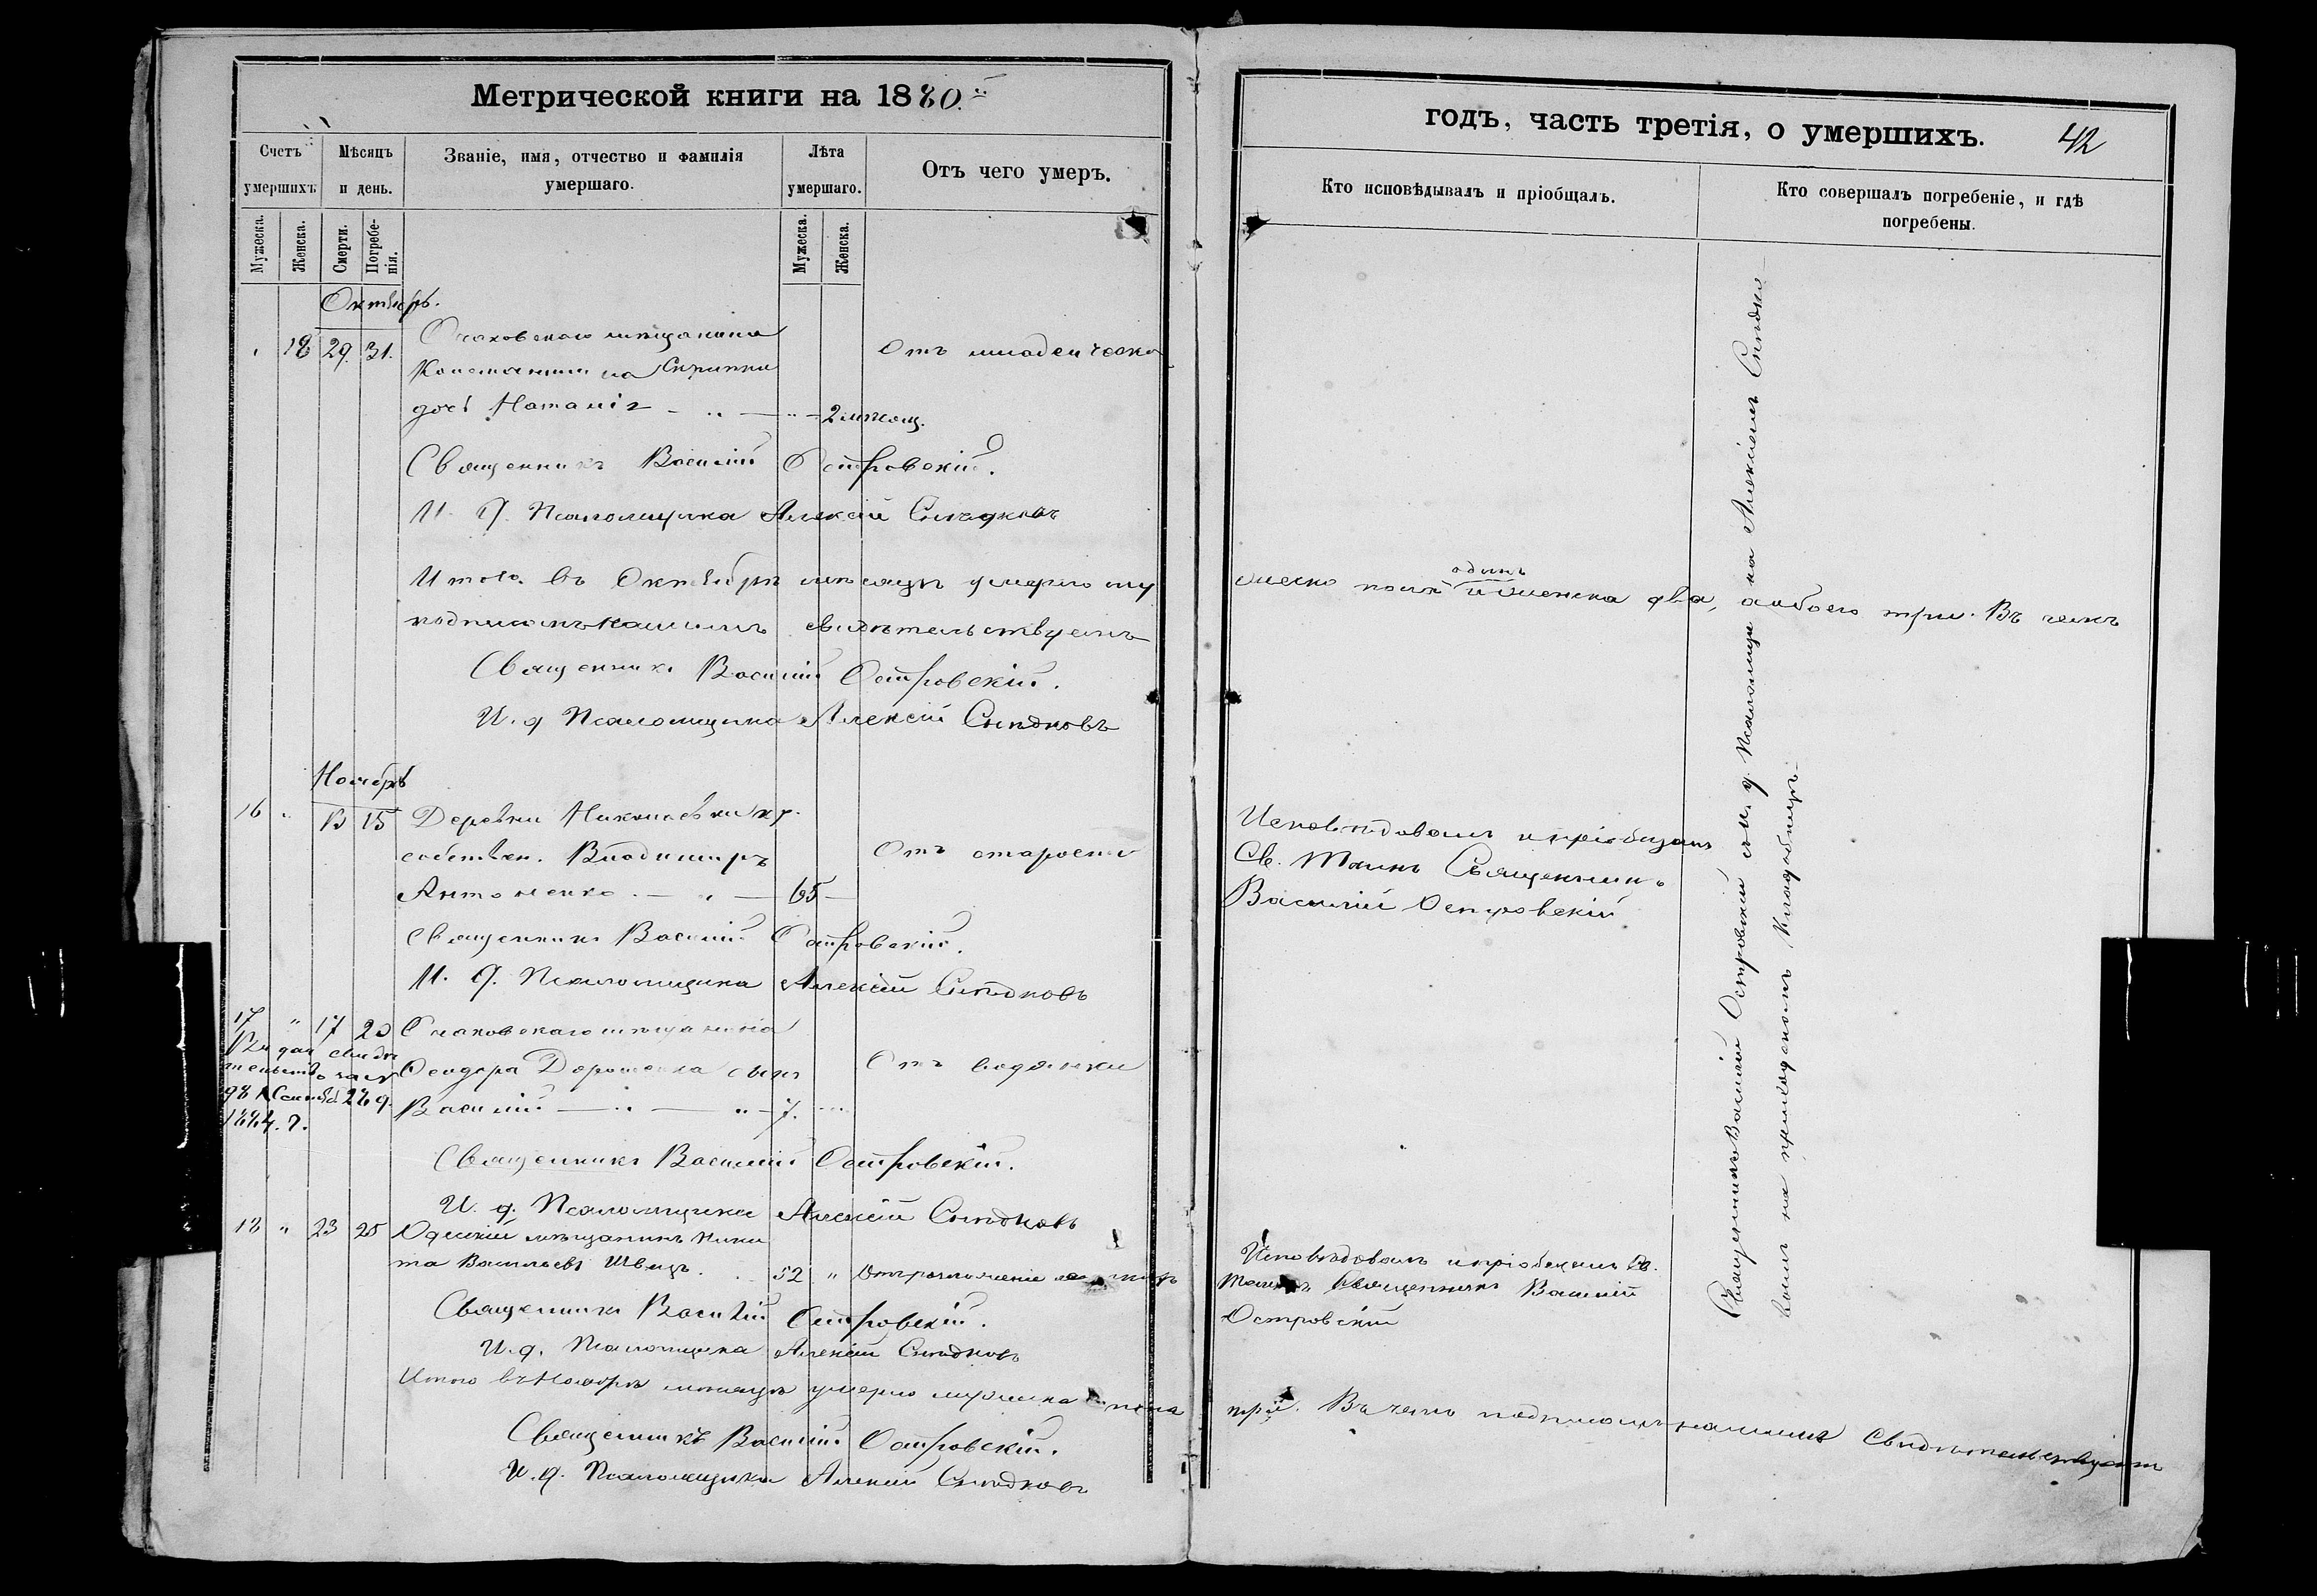 Метрической книги на 1880.й
Счетъ умершихъ.
Мѣсяцъ и день.
Званіе, имя, отчество и фамилія умершаго.
Лѣта умершаго.
Отъ чего умеръ.
Мужеска.
Женска.
Смерти.
Погребенія.
Мужеска.
Женска.
Октябрь.
18 29. 31. Очаковскаго мѣщанина
Константина Скрипки
дочь Наталія 2 мѣсяц.
Отъ младенческа
Священникъ Василій Островскій.
И. д. Псаломщика Алексій Слѣдковъ
Итого въ Октябрѣ мѣсяцѣ умерло му
подписомъ нашимъ свидѣтельствуемъ
Священникъ Василій Островскій.
И. д. Псаломщика Алексій Слѣдковъ
Ноябрь
16 13 15 Деревни Николаевки кр.
собствен. Владимиръ
Антоненко 65
Отъ старости
Священникъ Василій Островскій.
И. д. Псаломщика Алексій Слѣдковъ
17 " 17 20 Очаковскаго мѣщанина
Ѳеодора Дорошенка сынъ
Василій 7.
Отъ водянки
1884. г.
Священникъ Василій Островскій.
И. д. Псаломщика Алексій Слѣдковъ
18 " 23 25 Одесскій мѣщанинъ Ники
та Васильевъ Швецъ. 52 "
Священникъ Василій Островскій.
И. д. Псаломщика Алексій Слѣдковъ
Итого въ Ноябрѣ мѣсяцѣ умерло мужеска пола
Священникъ Василій Островскій.
И. д. Псаломщика Алексій Слѣдковъ
годъ, часть третія, о умершихъ.
42
Кто исповѣдывалъ и пріобщалъ.
Кто совершалъ погребеніе, и гдѣ погребены.
одинъ
жеско пола и женска два, обоего три. Въ чемъ
Исповѣдовалъ и пріобщалъ
Св. Таинъ Священникъ
Василій Островскій
Исповѣдовалъ и пріобщалъ Св.
Таинъ Священникъ Василій
Островскій
три. Въ чемъ подписомъ нашимъ свидѣтельствуемъ
Священникъ Василій Островскій съ и. д. Псаломщика Алексіемъ Слѣдко
вымъ на приходскомъ кладбищѣ.